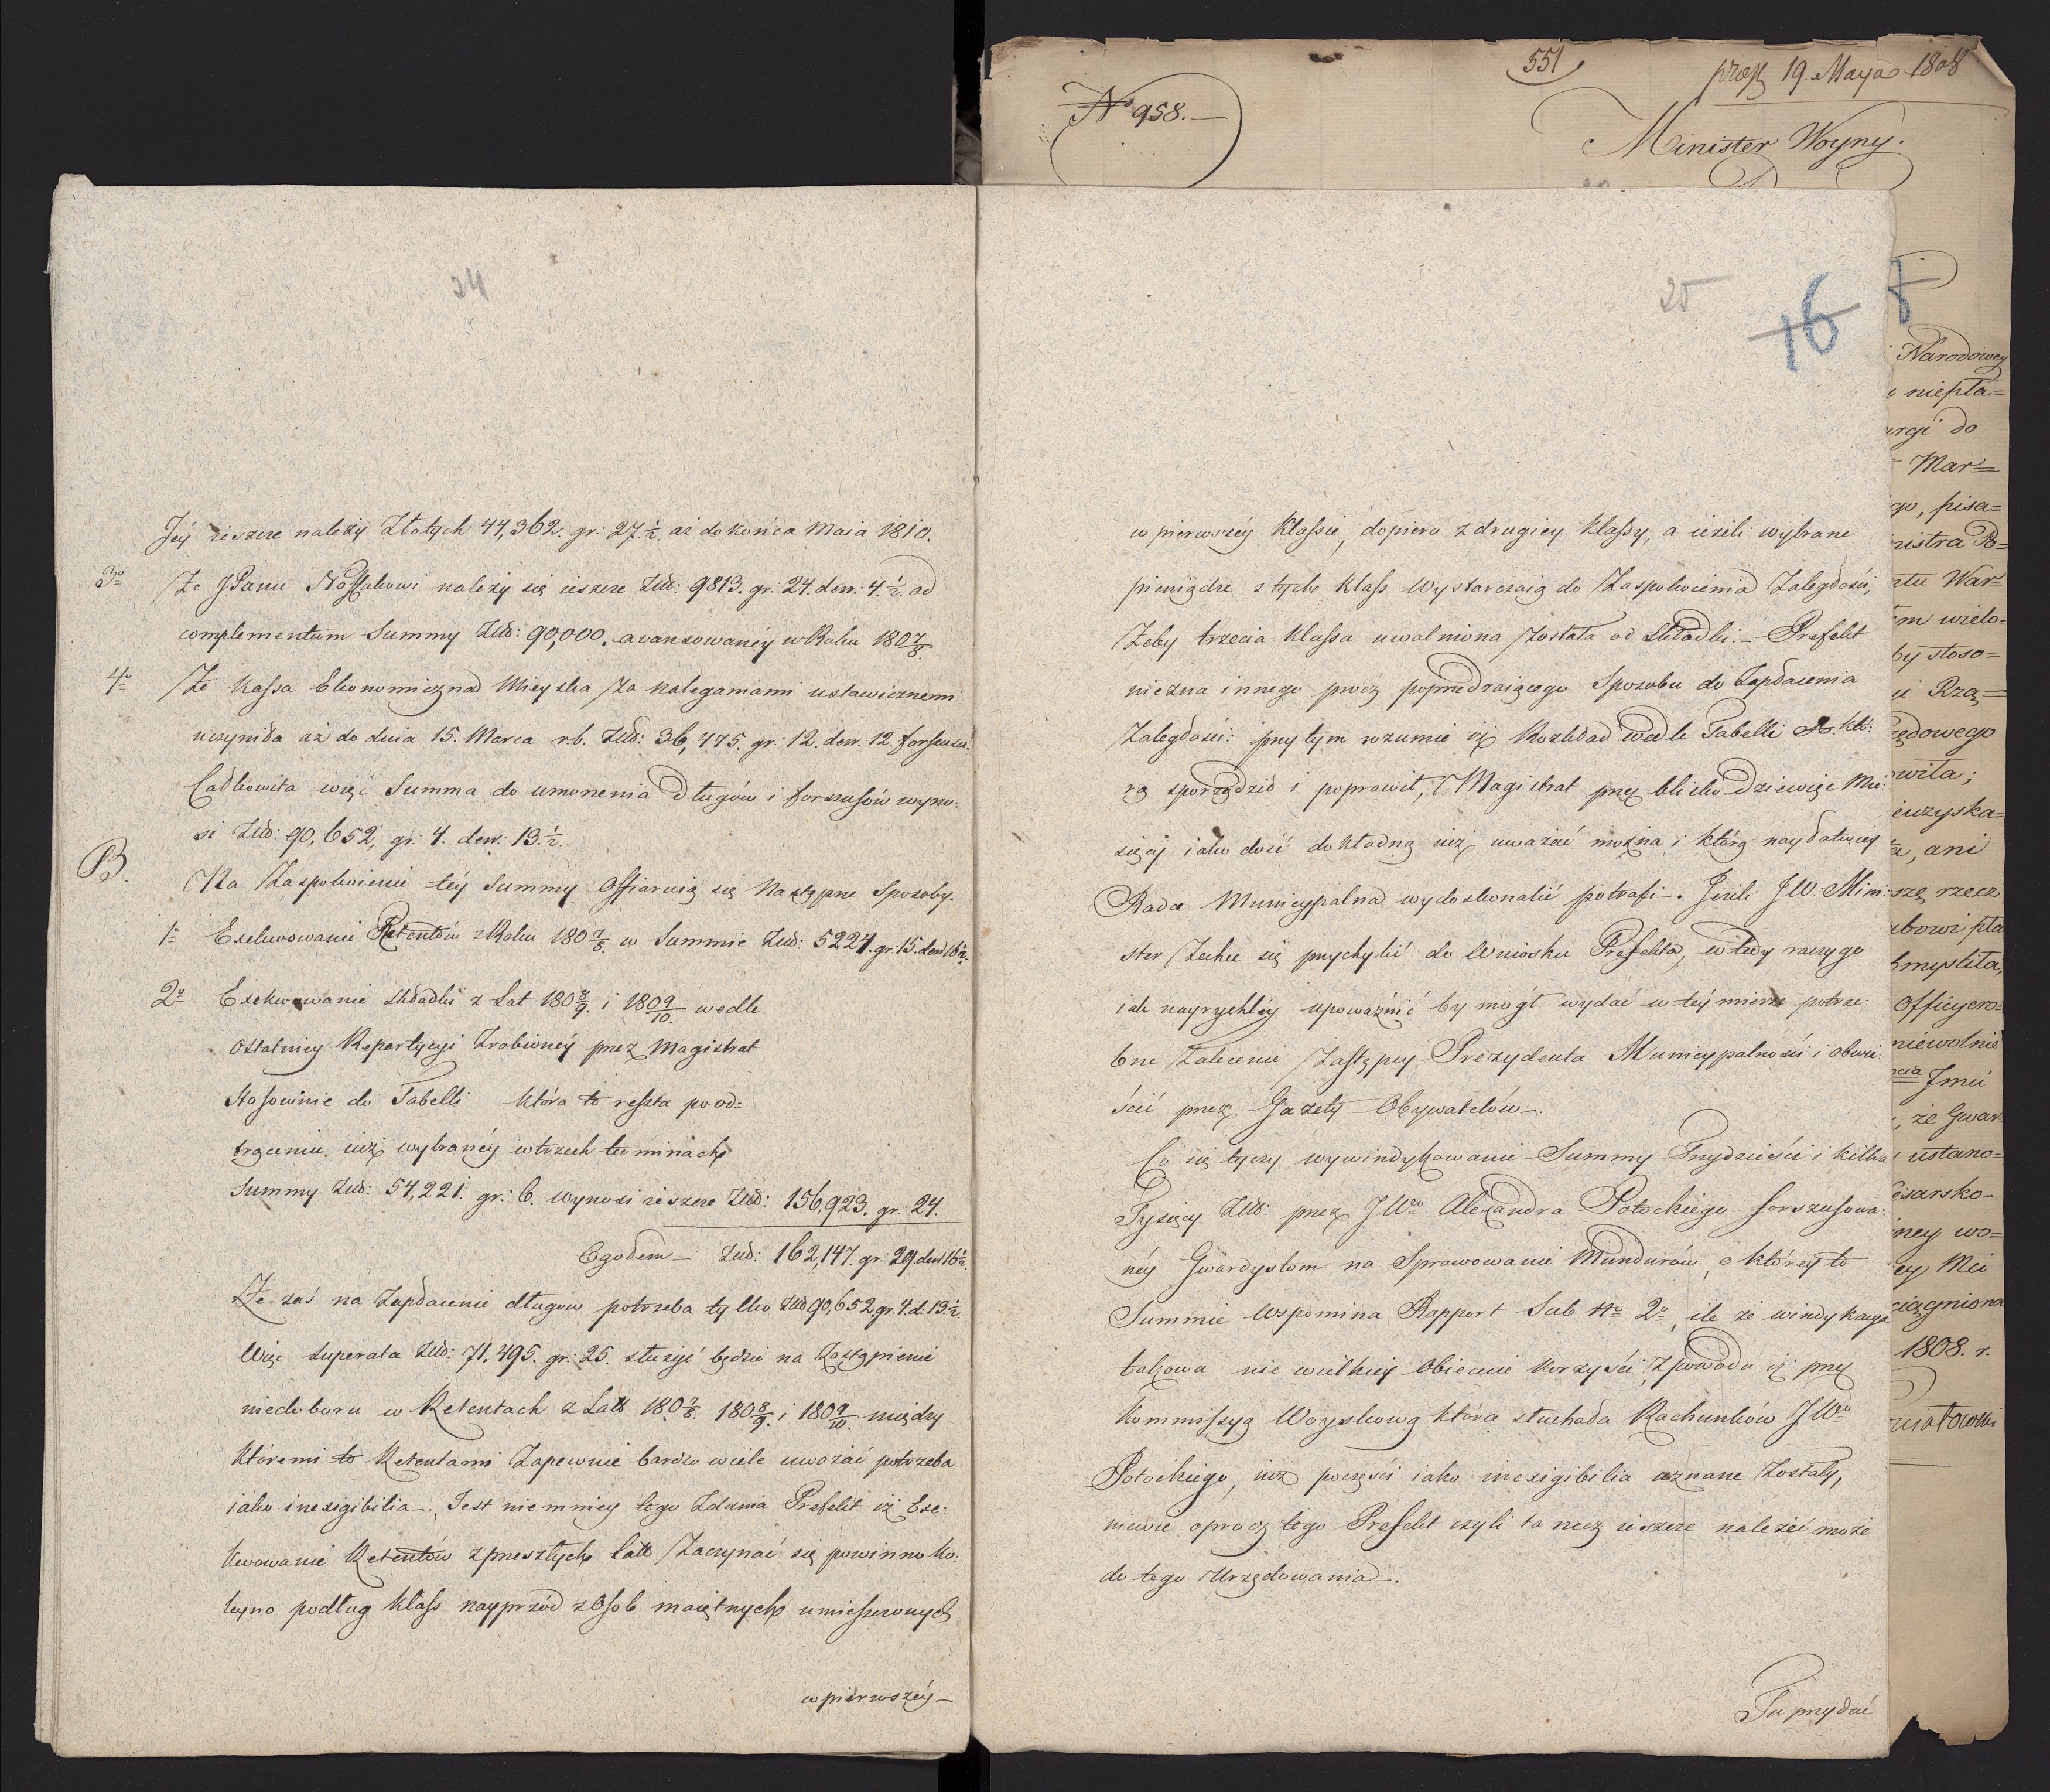 24
Jéy ieszcze należy Złotych 44,362. gr: 27.½. aż do końca Maia 1810.
3o Że JPanu Nossakowi należy się ieszcze Złłd: 9813. gr: 24. den: 4.½. ad
complementum Summy Złłd: 90,000. avansowanéy w Roku 180 7/8.
4o Że Kassa Ekonomiczna Mieyska za naleganiami ustawicznemi
uczyniła aż do dnia 15. Marca r.b. Złłd: 36,475. gr: 12. den: 12. forszusu.
Całkowita więc Summa do umorzenia długów i forszusów wyno:
si Złłd: 90,652, gr: 4. den: 13.½.
B.
Na Zaspokoienie téy Summy offiaruią się następne Sposoby.
1o Exekwowanie Retentów z Roku 180 7/8. w Summie Złłd: 5224. gr: 15. den: 16½.
2o Exekwowanie składki z Lat 180 8/9. i 180 9/10. wedle
ostatniey Repartycyi Zrobionéy przez Magistrat
stosownie do Tabelli która to reszta po od=
trąceniu iuż wybranéy w trzech terminach
Summy Złłd: 54,221. gr: 6. wynosi ieszcze Złłd: 156,923. gr: 24.
Ogołem – Złłd: 162,147. gr: 29. den: 16½.
Że zaś na Zapłacenie długów potrzeba tylko Złłd 90,652 gr. 4. d. 13½.
Więc Superata Złłd: 71,495. gr: 25. służyć będzie na Zastąpienie
niedoboru w Retentach z Latt 180 7/8. 180 8/9. i 180 9/10. między
któremi to Retentami Zapewnie bardzo wiele uważać potrzeba
iako inexigibilia –. Jest niemniey tego Zdania Prefekt iż Exe:
kwowanie Retentów z przeszłych Latt Zaczynać się powinno ko:
leyno podług Klass nayprzód z Osob maiętnych umieszczonych
w pierwszéy –
551
prez 19. Maya 1808
No 958. –
Minister Woyny.
25
16
8
w pierwszéy Klassie, dopiero z drugiey Klassy, a ieżeli wybrane
pieniądze z tych Klass wystarczaią do Zaspokoienia Zaległości,
Żeby trzecia Klassa uwalniona Została od składki. – Prefekt
niezna innego prócz poprzedzaiącego Sposobu do Zapłacenia
Zaległości: przy tym rozumie iż Rozkład wedle Tabelli któ:
rą sporządził i poprawił, Magistrat przez blisko dziewięć Mie:
sięcy iako dość dokładną iuż uważać można i którą nayłatwiey
Rada Municypalna wydoskonalić potrafi –. Jeżeli JW. Mini:
ster Zechce się przychylić do Wniosku Prefekta, wtedy raczy go
iak nayrychléy upoważnić by mógł wydać w téy mierze potrze:
bne Zalecenie Zastępcy Prezydenta Municypalności i obwie:
ścić przez Gazety Obywatelów –.
Co się tyczy wywindykowanie Summy Trzydzieści i kilka
Tysięcy Złłd: przez JWo Alexandra Potockiego forszusowa:
néy Gwardystom na Sprawowanie Mundurów, o któréy to
Summie wspomina Rapport Sub No 2o, ile że windykacya
takowa nie wielkiéy obiecuie korzyści, z powodu iż przez
Kommissyą Woyskową która słuchała Rachunków JWo
Potockiego, iuż poczęści iako inexigibilia uznane Zostały,
niewie oprocz tego Prefekt czyli ta rzecz ieszcze należeć może
do tego Urzędowania –.
Tu przydać
Narodowey
niepła=
urgi do
Mar=
go, pisa=
nistra Po=
rtu War=
m wielo=
by stoso=
i Rzą=
ędowego
owita;
euzyska=
ta, ani
szę rzecz
ubowi pła
bmyślita,
Officyero=
niewolnie
Jmci
, że Gwar
ustano=
esarsko=
ney wo=
ey Mei
ciągniona
1808. r.
niatowski